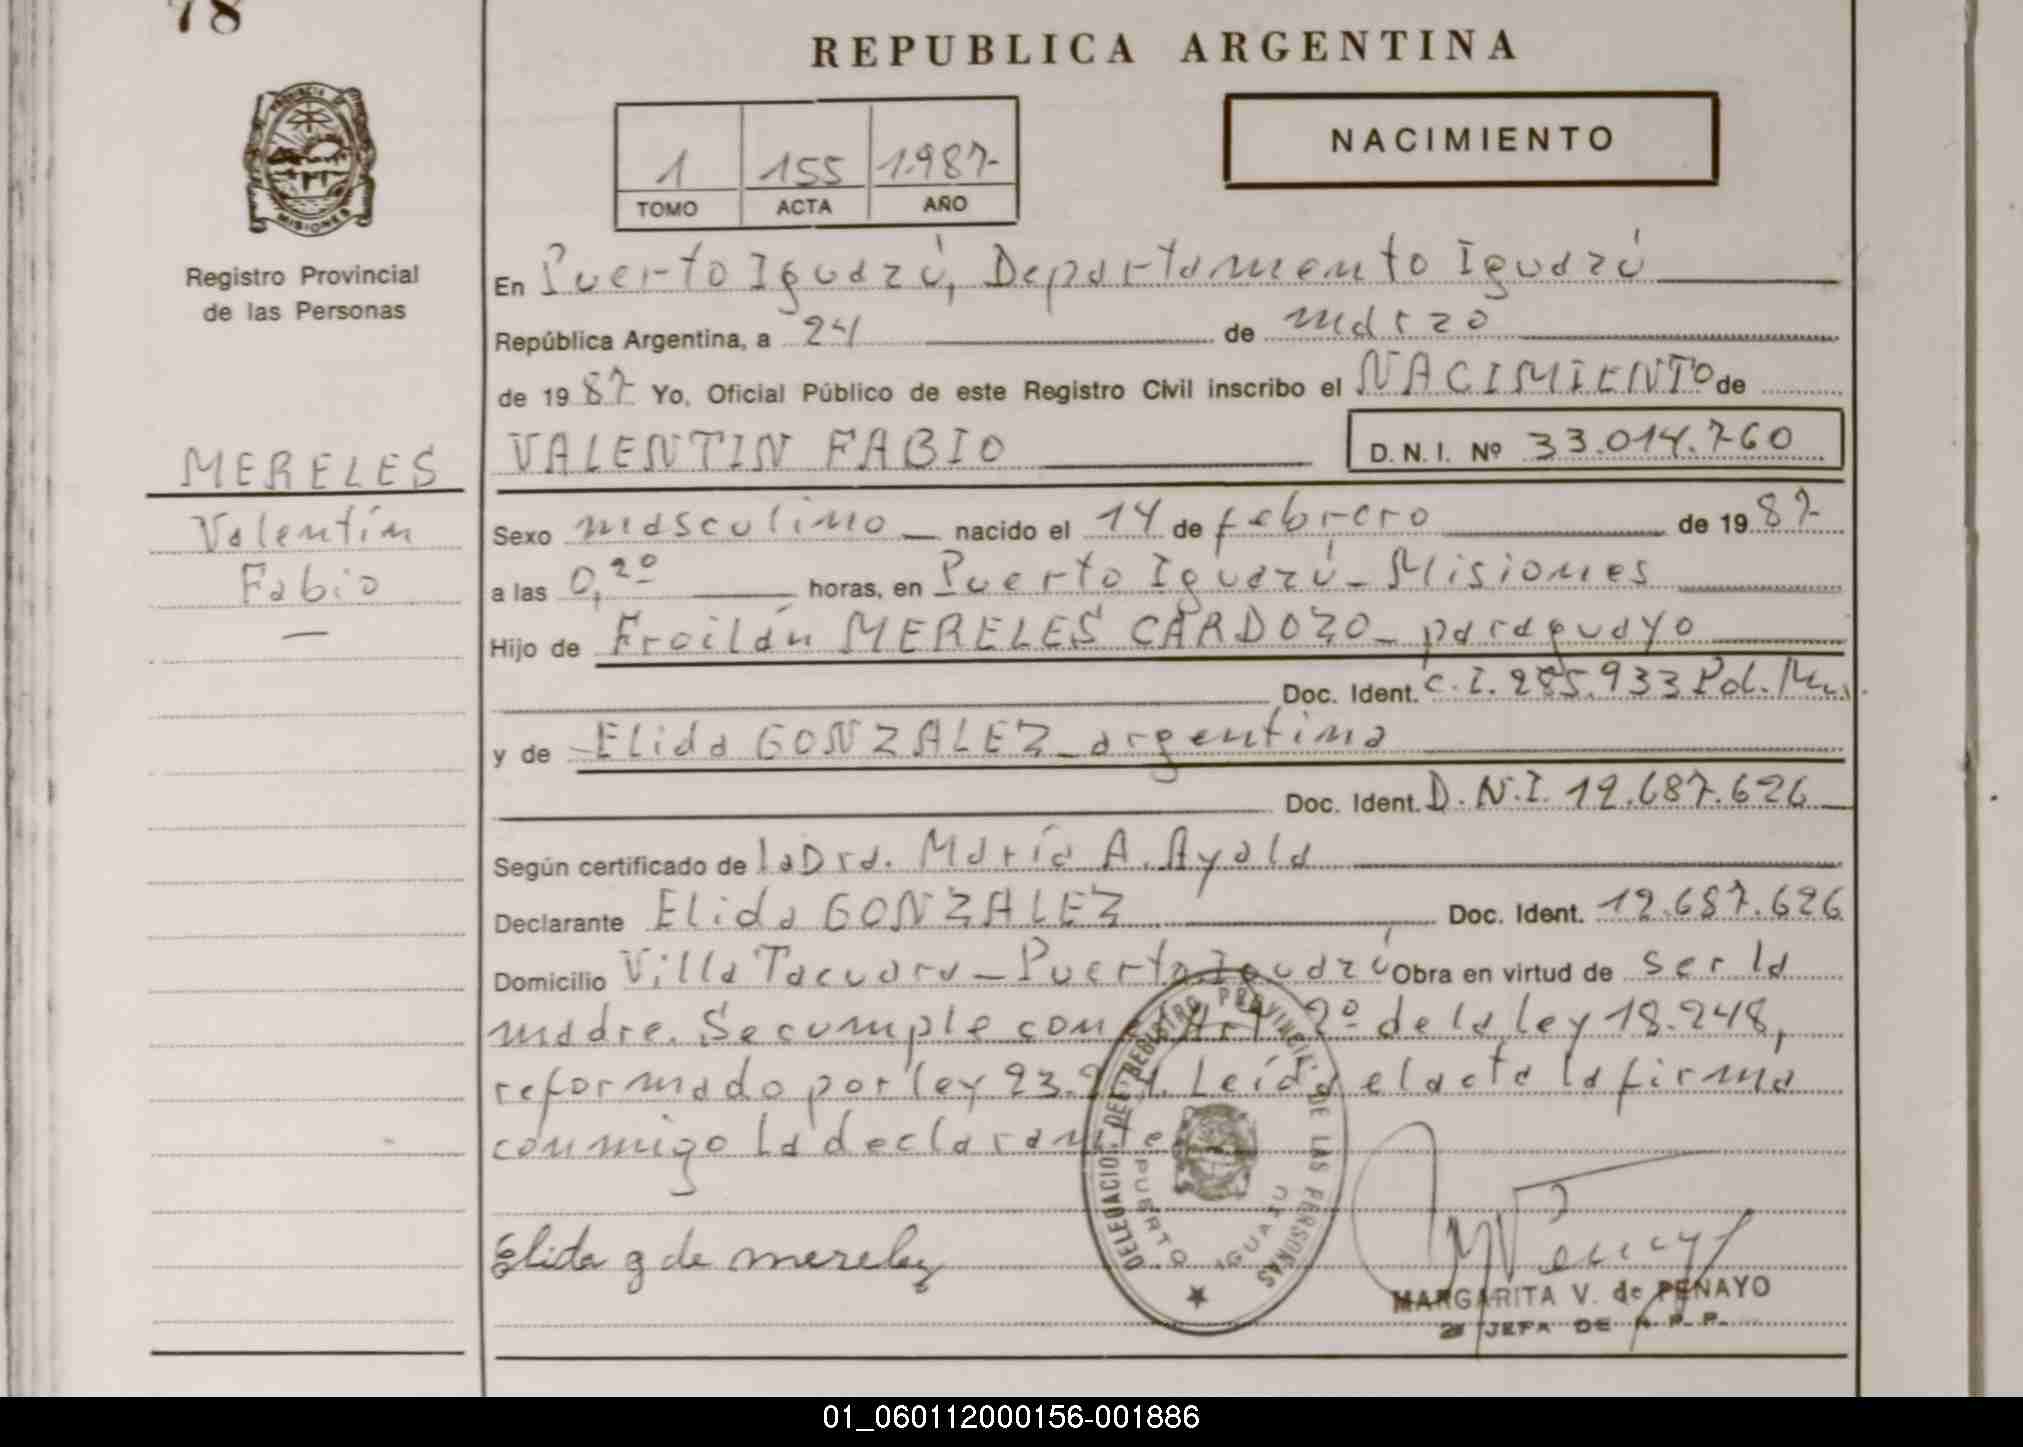 78
REPUBLICA ARGENTINA
PROVINCIA DE
MISIONES
Registro Provincial
de las Personas
1 155 1.987-
TOMO ACTA AÑO
NACIMIENTO
En Puerto Iguazú, Departamento Iguazú
República Argentina, a 24 de marzo
de 1987 Yo, Oficial Público de este Registro Civil inscribo el NACIMIENTO de
VALENTIN FABIO D. N. I. Nº 33.014.760
MERELES
Valentín
Fabio
Sexo masculino nacido el 14 de febrero de 1987
a las 0,20 horas, en Puerto Iguazú - Misiones
Hijo de Froilán MERELES CARDOZO - paraguayo
Doc. Ident. C.I. 285.933 Pol.
y de Elida GONZALEZ - argentina
Doc. Ident. D.N.I. 12.687.626
Según certificado de la Dra. María A. Ayala
Declarante Elida GONZALEZ Doc. Ident. 12.687.626
Domicilio Villa Tacuara - Puerto Iguazú Obra en virtud de ser la
madre. Se cumple con el Art. 2º de la ley 18.248,
reformado por ley Leída el acta la firma
conmigo la declarante
Elida g de mereles
DELEGACION DEL REGISTRO PROVINCIAL DE LAS PERSONAS
PUERTO IGUAZU
MARGARITA V. de PENAYO
JEFA DE R. P. P.
01_060112000156-001886